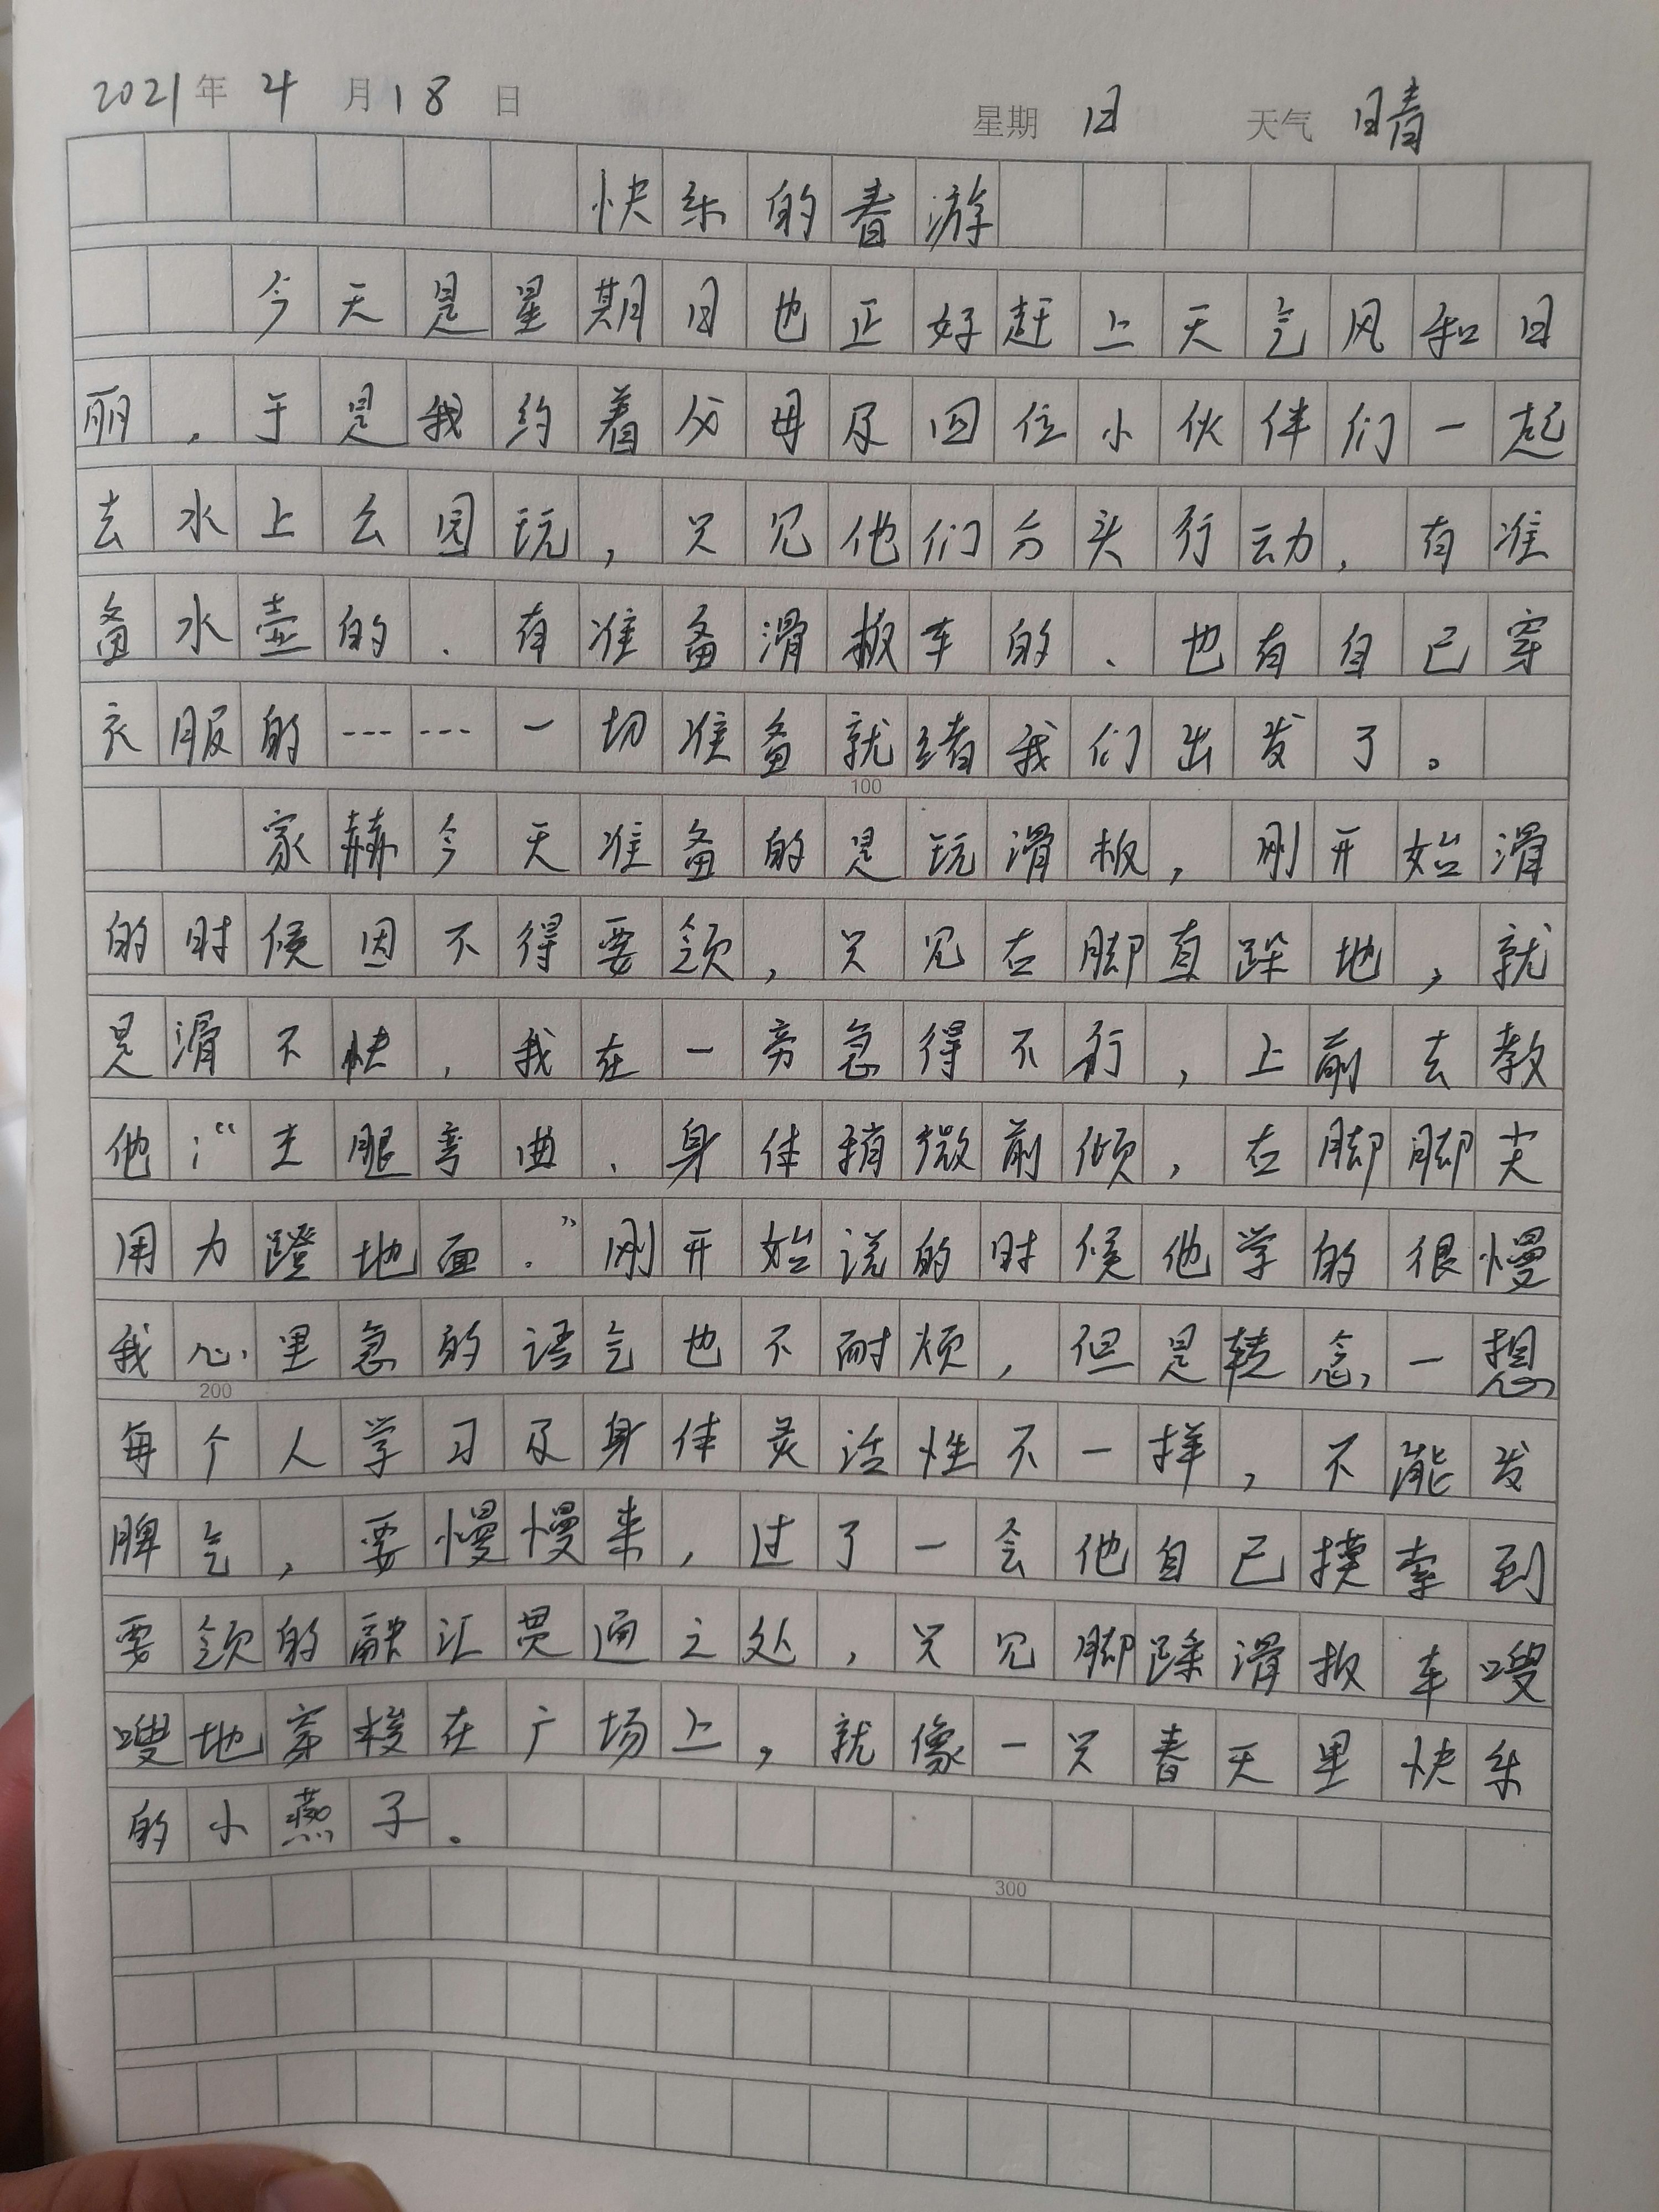 2021年 4月18日 星期 日 天气 晴
快乐的春游
今天是星期日也正好赶上天气风和日
丽,于是我约着父母及四位小伙伴们一起
去水上公园玩,只见他们分头行动,有准
备水壶的、有准备滑板车的、也有自己穿
衣服的……一切准备就绪我们出发了。
100
家赫今天准备的是玩滑板,刚开始滑
的时候因不得要领,只见右脚直跺地,就
是滑不快,我在一旁急得不行,上前去教
他:“主腿弯曲、身体稍微前倾,右脚脚尖
用力蹬地面.”刚开始说的时候他学的很慢
我心里急的语气也不耐烦,但是转念一想
200
每个人学习及身体灵活性不一样,不能发
脾气,要慢慢来,过了一会他自己摸索到
要领的融汇贯通之处,只见脚踩滑板车嗖
嗖地穿梭在广场上,就像一只春天里快乐
的小燕子.
300